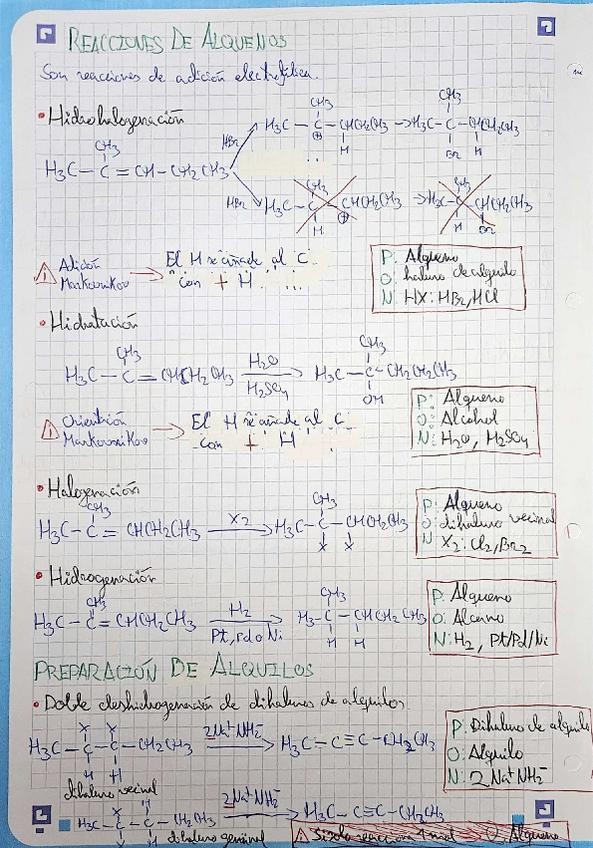 REACCIONES DE ALQUENOS
Son reacciones de adición electrofílica.
• Hidrohalogenación
CH3
H3C – C = CH – CH2CH3
HBr
CH3
H3C – C – CHCH2CH3
⊕ H
→
CH3
H3C – C – CHCH2CH3
Br H
HBr
CH3
H3C – C – CHCH2CH3
H ⊕
→
CH3
H3C – C – CHCH2CH3
H Br
Adición
Markovnikov
→ El H se añade al C
con + H
P: Alqueno
O: haluro de alquilo
N: HX: HBr, HCl
• Hidratación
CH3
H3C – C = CHCH2CH3
H2O
H2SO4
CH3
H3C – C – CH2CH2CH3
OH
Orientación
Markovnikov
→ El H se añade al C
con + H
P: Alqueno
O: Alcohol
N: H2O, H2SO4
• Halogenación
CH3
H3C – C = CHCH2CH3
X2
CH3
H3C – C – CHCH2CH3
X X
P: Alqueno
O: dihaluro vecinal
N: X2: Cl2, Br2
• Hidrogenación
CH3
H3C – C = CHCH2CH3
H2
Pt, Pd o Ni
CH3
H3C – C – CHCH2CH3
H H
P: Alqueno
O: Alcano
N: H2, Pt/Pd/Ni
PREPARACIÓN DE ALQUILOS
• Doble deshidrogenación de dihaluros de alquilos
X X
H3C – C – C – CH2CH3
H H
2Na+NH2-
H3C – C = C ≡ C – CH2CH3
dihaluro vecinal
P: Dihaluro de alquilo
O: Alquilo
N: 2Na+NH2-
X H
H3C – C – C – CH2CH3
X H
2Na+NH2-
H3C – C ≡ C – CH2CH3
dihaluro geminal
Si solo reacciona 1 mol
O: Alqueno